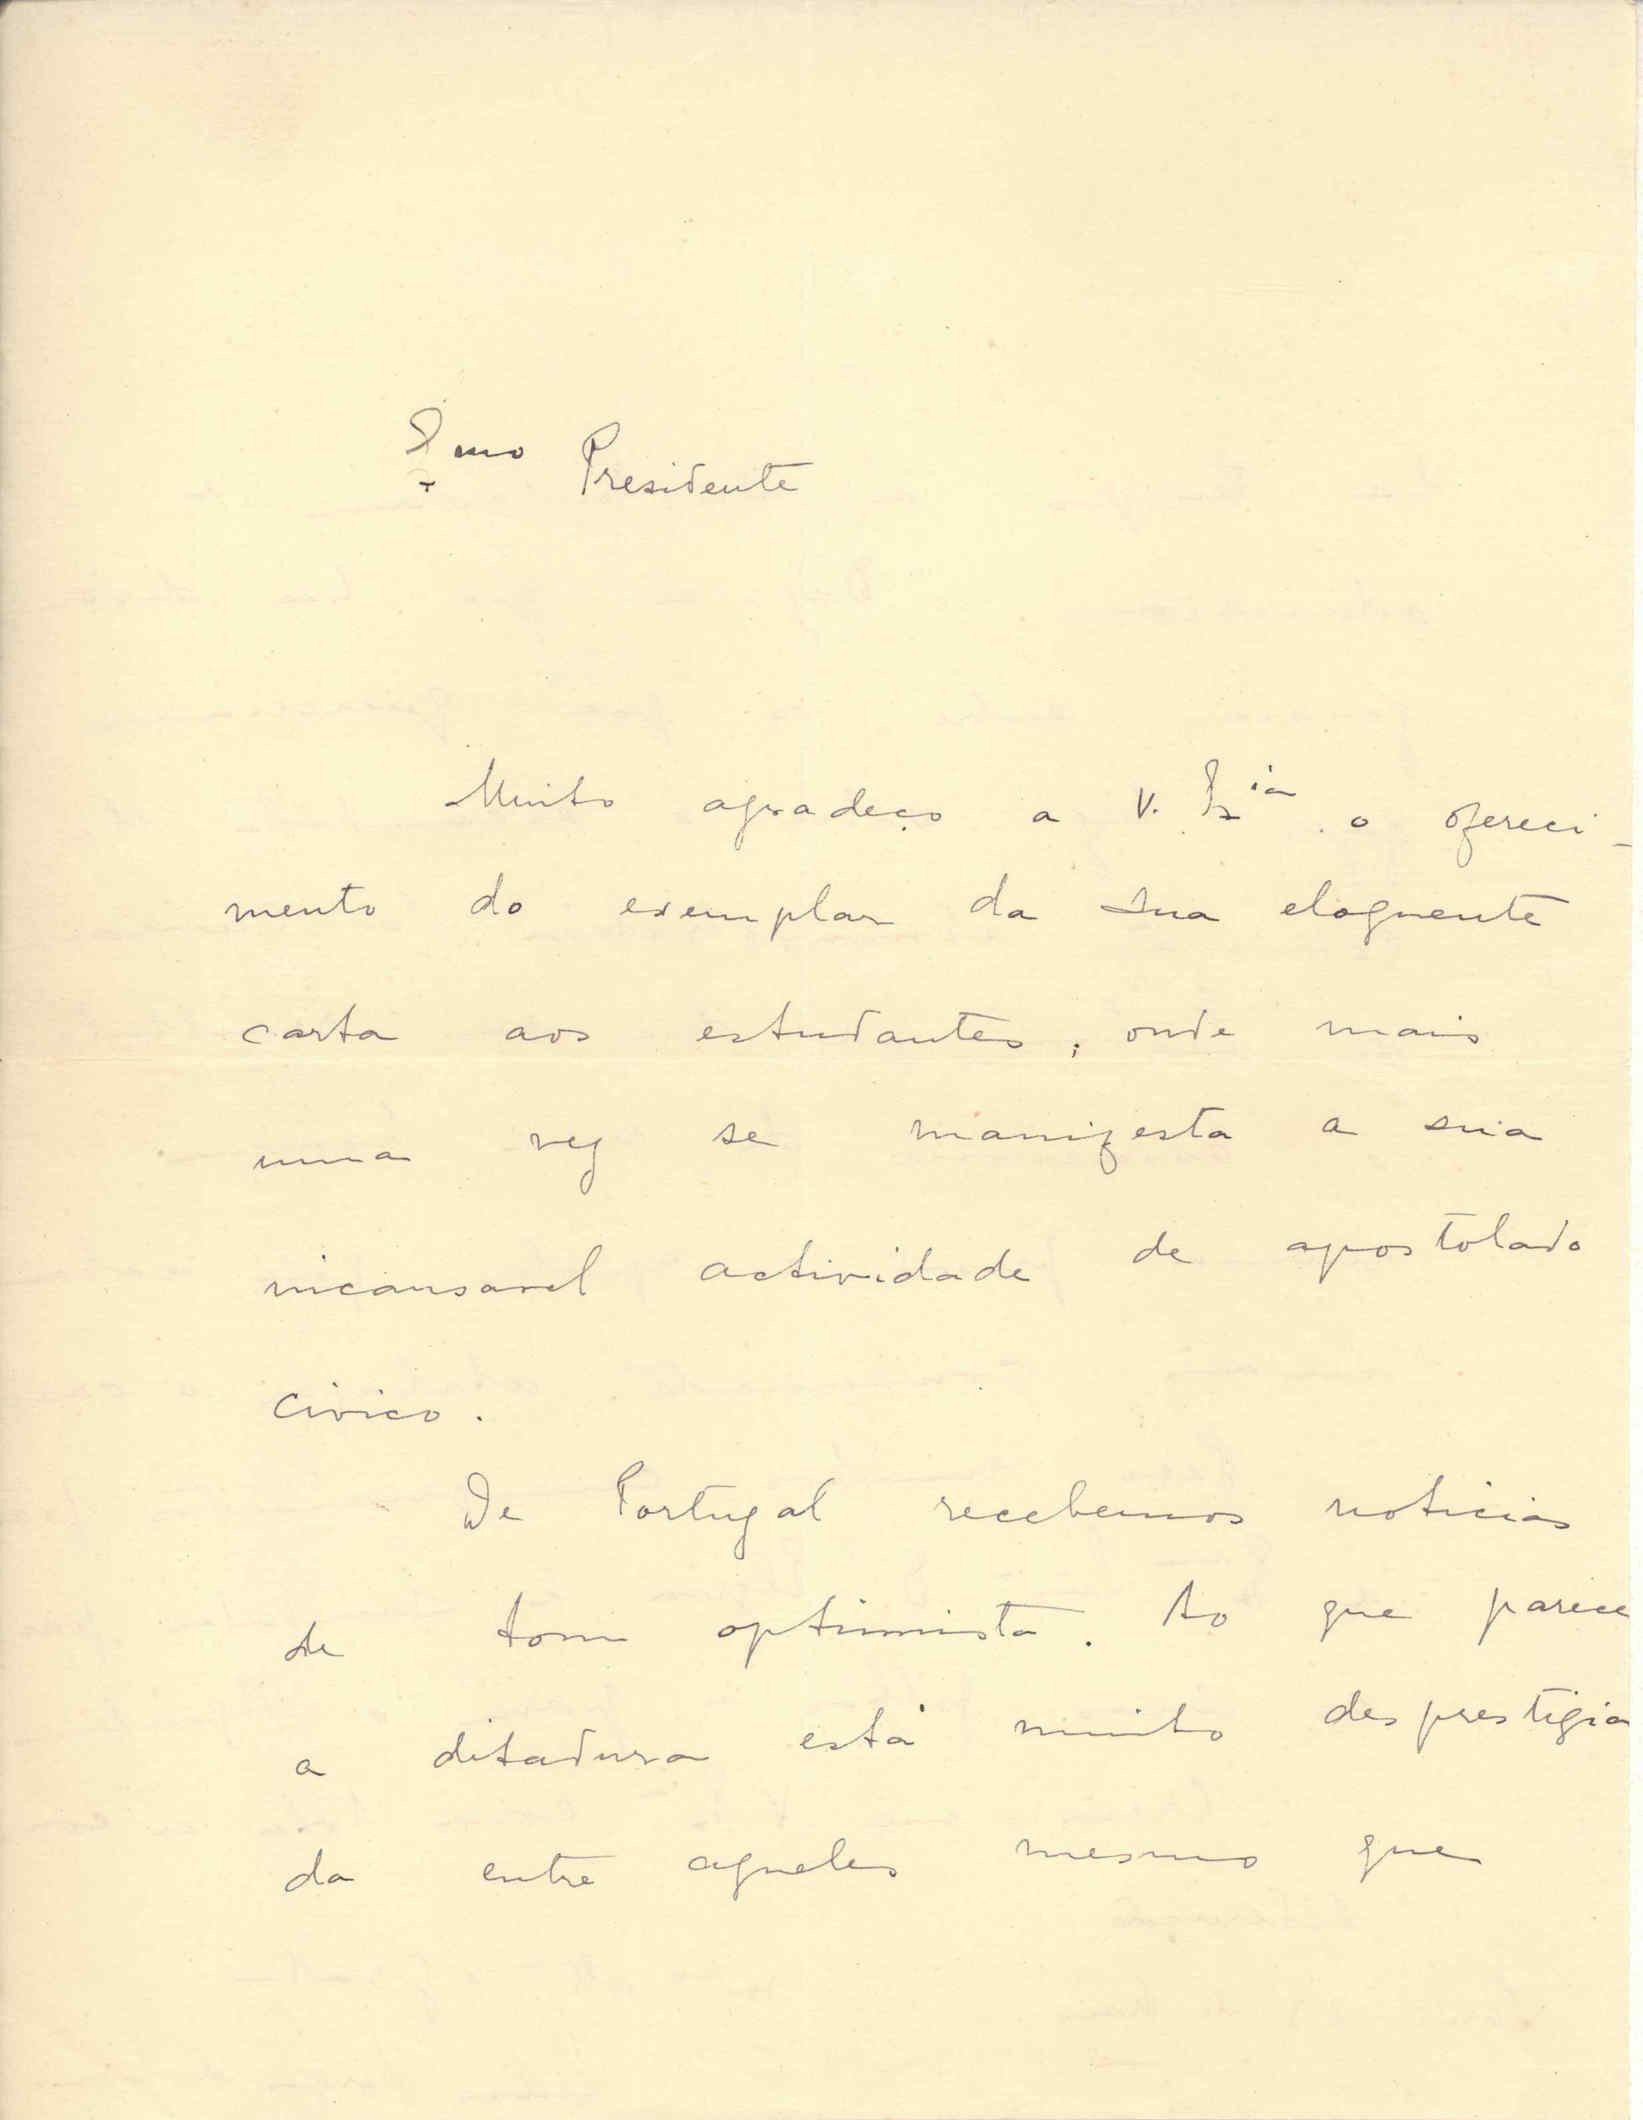 Exmo Presidente
Muito agradeço a V. Exia o ofereci-
mento do exemplar da sua eloquente
carta aos estudantes, onde mais
uma vez se manifesta a sua
incansavel actividade de apostolado
civico.
De Portugal recebemos noticias
de tom optimista. Ao que parece
a ditadura está muito desprestigia
da entre aqueles mesmo que